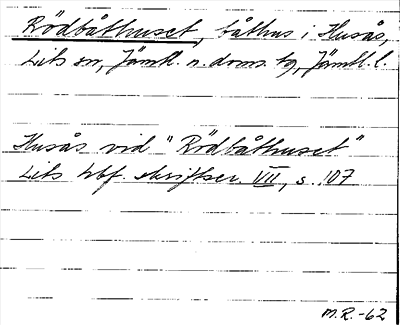 Rödbåthuset, båthus i Husås,
Lits sn, Jämtl. n. doms. tg, Jämtl. l.
Husås vid "Rödbåthuset"
Lits hbf. skriftser. VII, s. 107
M.R.-62